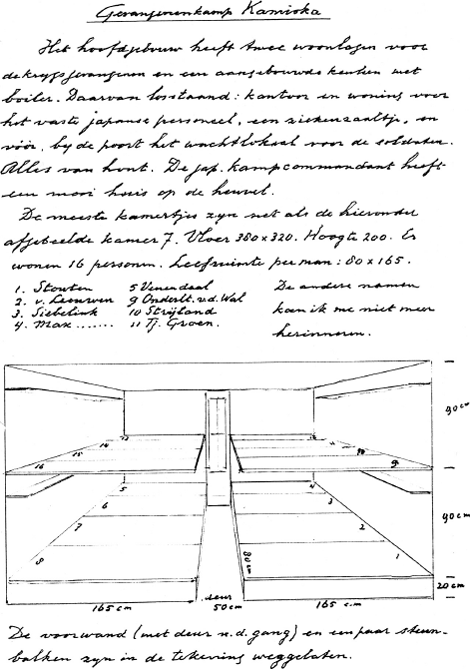 Gevangenenkamp Kamioka
Het hoofdgebouw heeft twee woonlagen voor
de krijgsgevangenen en een aangebouwde keuken met
boiler. Daarvan losstaand: kantoor en woning voor
het vaste japanse personeel, een ziekenzaaltje, en
vóór, bij de poort het wachtlokaal voor de soldaten.
Alles van hout. De jap. kampcommandant heeft
een mooi huis op de heuvel.
De meeste kamertjes zijn net als de hieronder
afgebeelde kamer 7. Vloer 380 x 320. Hoogte 200. Er
wonen 16 personen. Leefruimte per man: 80 x 165.
1. Stouten 5 Venendaal De andere namen
2. v. Leeuwen 9 Onderlt. v.d. Wal kan ik me niet meer
3. Siebelink 10 Strijland herinneren.
4. Max ....... 11 Tj. Groen.
90 cm
16 15 14 13 9
5 4
6 3
7 2
8 1
80 cm
90 cm
20 cm
165 cm deur 50 cm 165 cm
De voorwand (met deur n.d. gang) en een paar steun-
balken zijn in de tekening weggelaten.